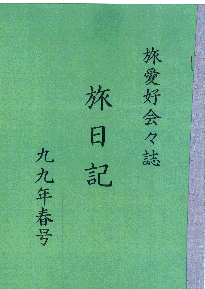 旅愛好会々誌
旅日記
九九年春号